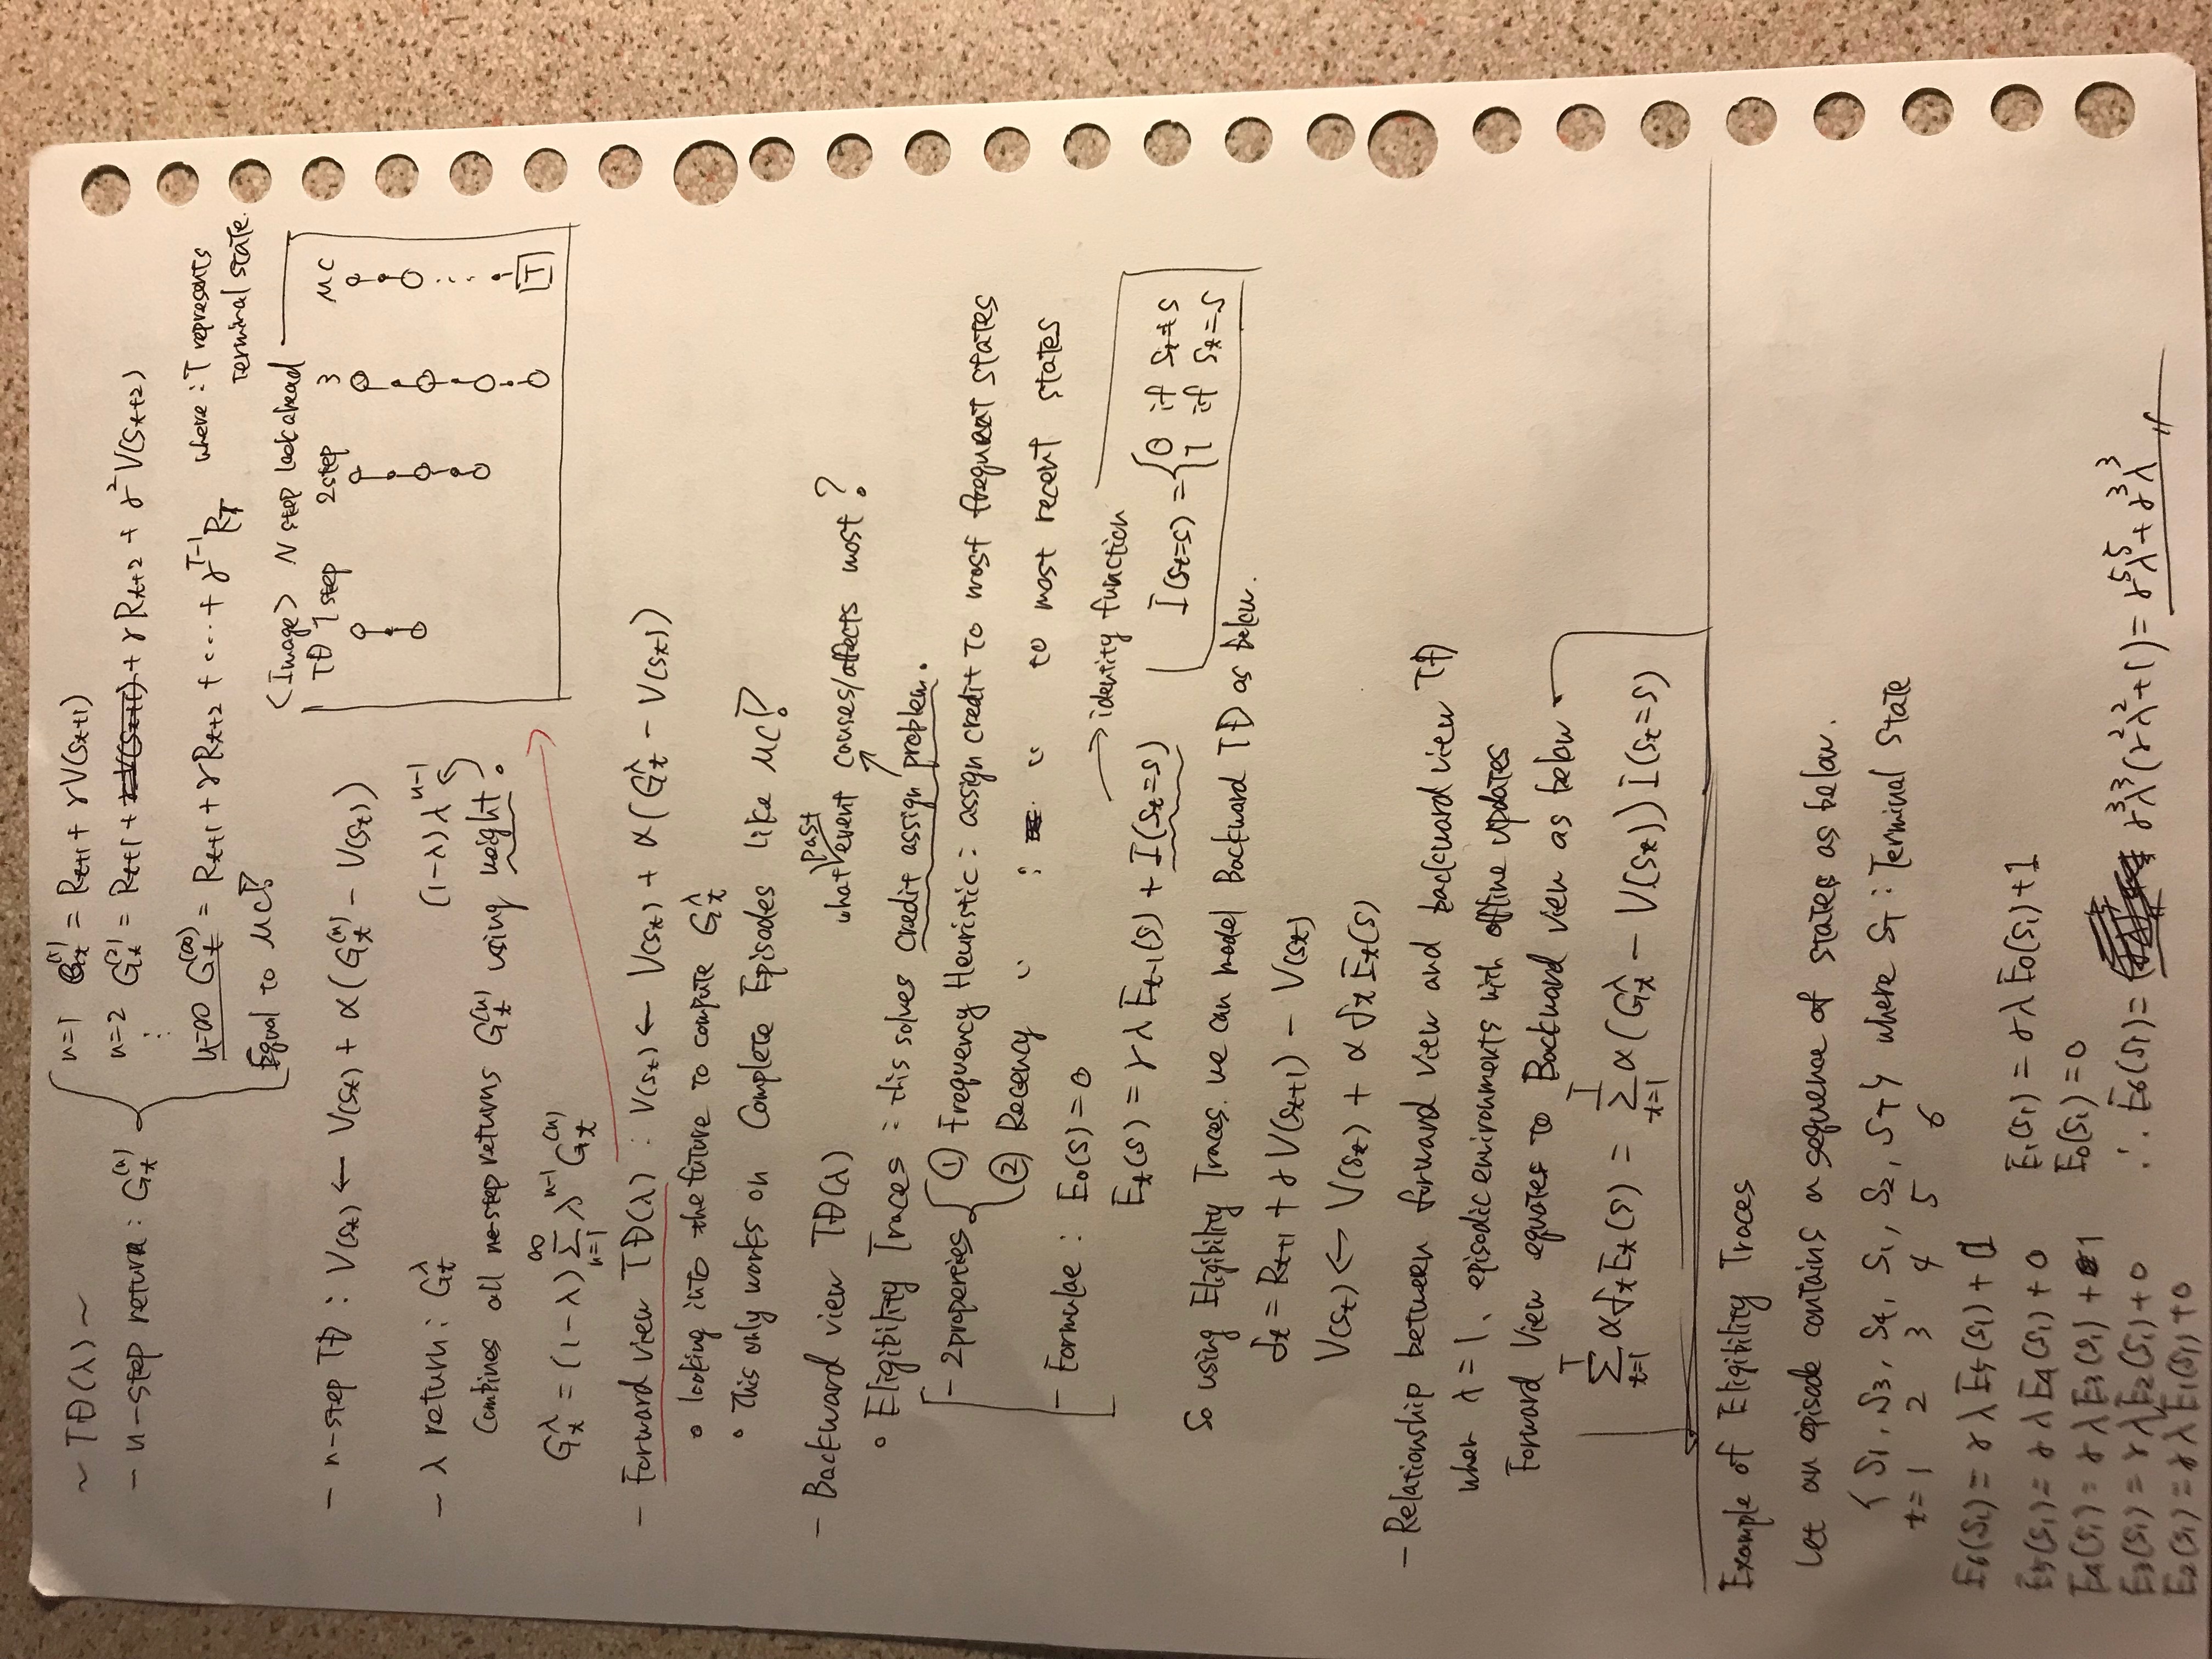 ~ TD(λ) ~
- n-step return : G_t^(n)
n=1 G_t^(1) = R_t+1 + γV(S_t+1)
n=2 G_t^(2) = R_t+1 + γR_t+2 + γ²V(S_t+2)
⋮
n=∞ G_t^(∞) = R_t+1 + γR_t+2 + ... + γ^T-1 R_T where : T represents
terminal state.
Equal to MC!
<Image> N step lookahead
TD 1 step 2step 3 MC
T
- n-step TD : V(S_t) ← V(S_t) + α(G_t^(n) - V(S_t))
- λ return : G_t^λ (1-λ)λ^n-1
Combines all n-step returns G_t^(n) using weight
G_t^λ = (1-λ) Σ_n=1^∞ λ^n-1 G_t^(n)
- Forward view TD(λ) : V(S_t) ← V(S_t) + α(G_t^λ - V(S_t))
• looking into the future to compute G_t^λ
• This only works on Complete Episodes like MC!
- Backward view TD(λ)
what past event causes/affects most?
• Eligibility Traces : this solves credit assign problem.
- 2properties ① Frequency Heuristic : assign credit to most frequent states
② Recency 〃 : 〃 to most recent states
- Formulae : E_0(s) = 0
E_t(s) = γλE_t-1(s) + I(S_t=s)
→ identity function
I(S_t=s) = { 0 if S_t≠s
1 if S_t=s
So using Eligibility Traces. we can model Backward TD as below.
δ_t = R_t+1 + γV(S_t+1) - V(S_t)
V(S_t) ← V(S_t) + αδ_tE_t(s)
- Relationship between forward view and backward view TD
when λ = 1, episodic environments with offline updates
Forward View equates to Backward view as below
Σ_t=1^T αδ_tE_t(s) = Σ_t=1^T α(G_t^λ - V(S_t)) I(S_t=s)
Example of Eligibility Traces
Let an episode contains a sequence of states as below.
{ S_1, S_3, S_4, S_1, S_2, S_T } where S_T : Terminal State
t= 1 2 3 4 5 6
E_6(S_1) = γλE_5(S_1) + 0
E_5(S_1) = γλE_4(S_1) + 0
E_4(S_1) = γλE_3(S_1) + 1
E_3(S_1) = γλE_2(S_1) + 0
E_2(S_1) = γλE_1(S_1) + 0
E_1(S_1) = γλE_0(S_1) + 1
E_0(S_1) = 0
∴ E_6(S_1) = γ³λ³(γ²λ²+1) = γ⁵λ⁵ + γ³λ³